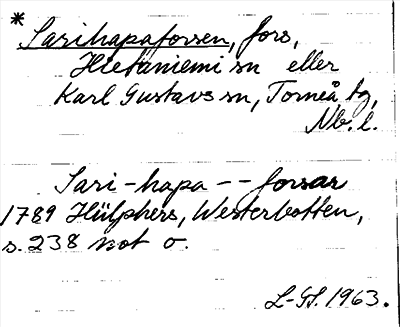 * Sarihapaforsen, fors,
Hietaniemi sn eller
Karl Gustavs sn, Torneå tg,
Nb. l.
Sari-hapa -- forsar
1789 Hülphers, Westerbotten,
s. 238 not o.
L-GH. 1963.